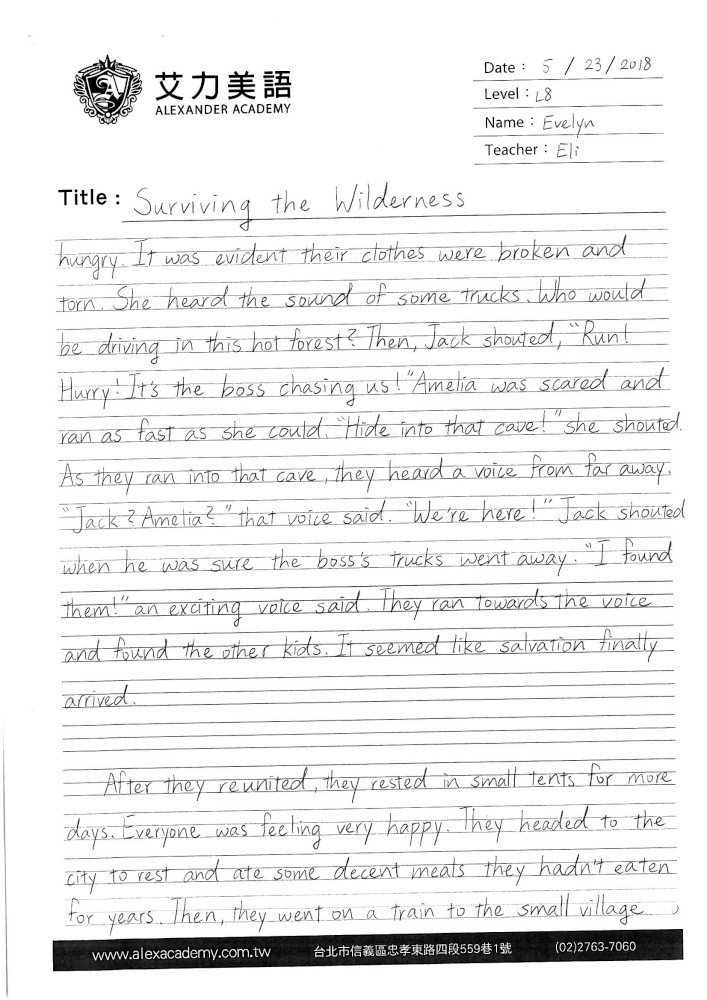 艾力美語
ALEXANDER ACADEMY
Date : 5 / 23 / 2018
Level : L8
Name : Evelyn
Teacher : Eli
Title : Surviving the Wilderness
hungry. It was evident their clothes were broken and
torn. She heard the sound of some trucks. Who would
be driving in this hot forest? Then, Jack shouted, "Run!
Hurry! It's the boss chasing us!" Amelia was scared and
ran as fast as she could. "Hide into that cave!" she shouted.
As they ran into that cave, they heard a voice from far away.
"Jack? Amelia?" that voice said. "We're here!" Jack shouted
when he was sure the boss's trucks went away. "I found
them!" an exciting voice said. They ran towards the voice
and found the other kids. It seemed like salvation finally
arrived.
After they reunited, they rested in small tents for more
days. Everyone was feeling very happy. They headed to the
city to rest and ate some decent meals they hadn't eaten
for years. Then, they went on a train to the small village
www.alexacademy.com.tw 台北市信義區忠孝東路四段559巷1號 (02)2763-7060